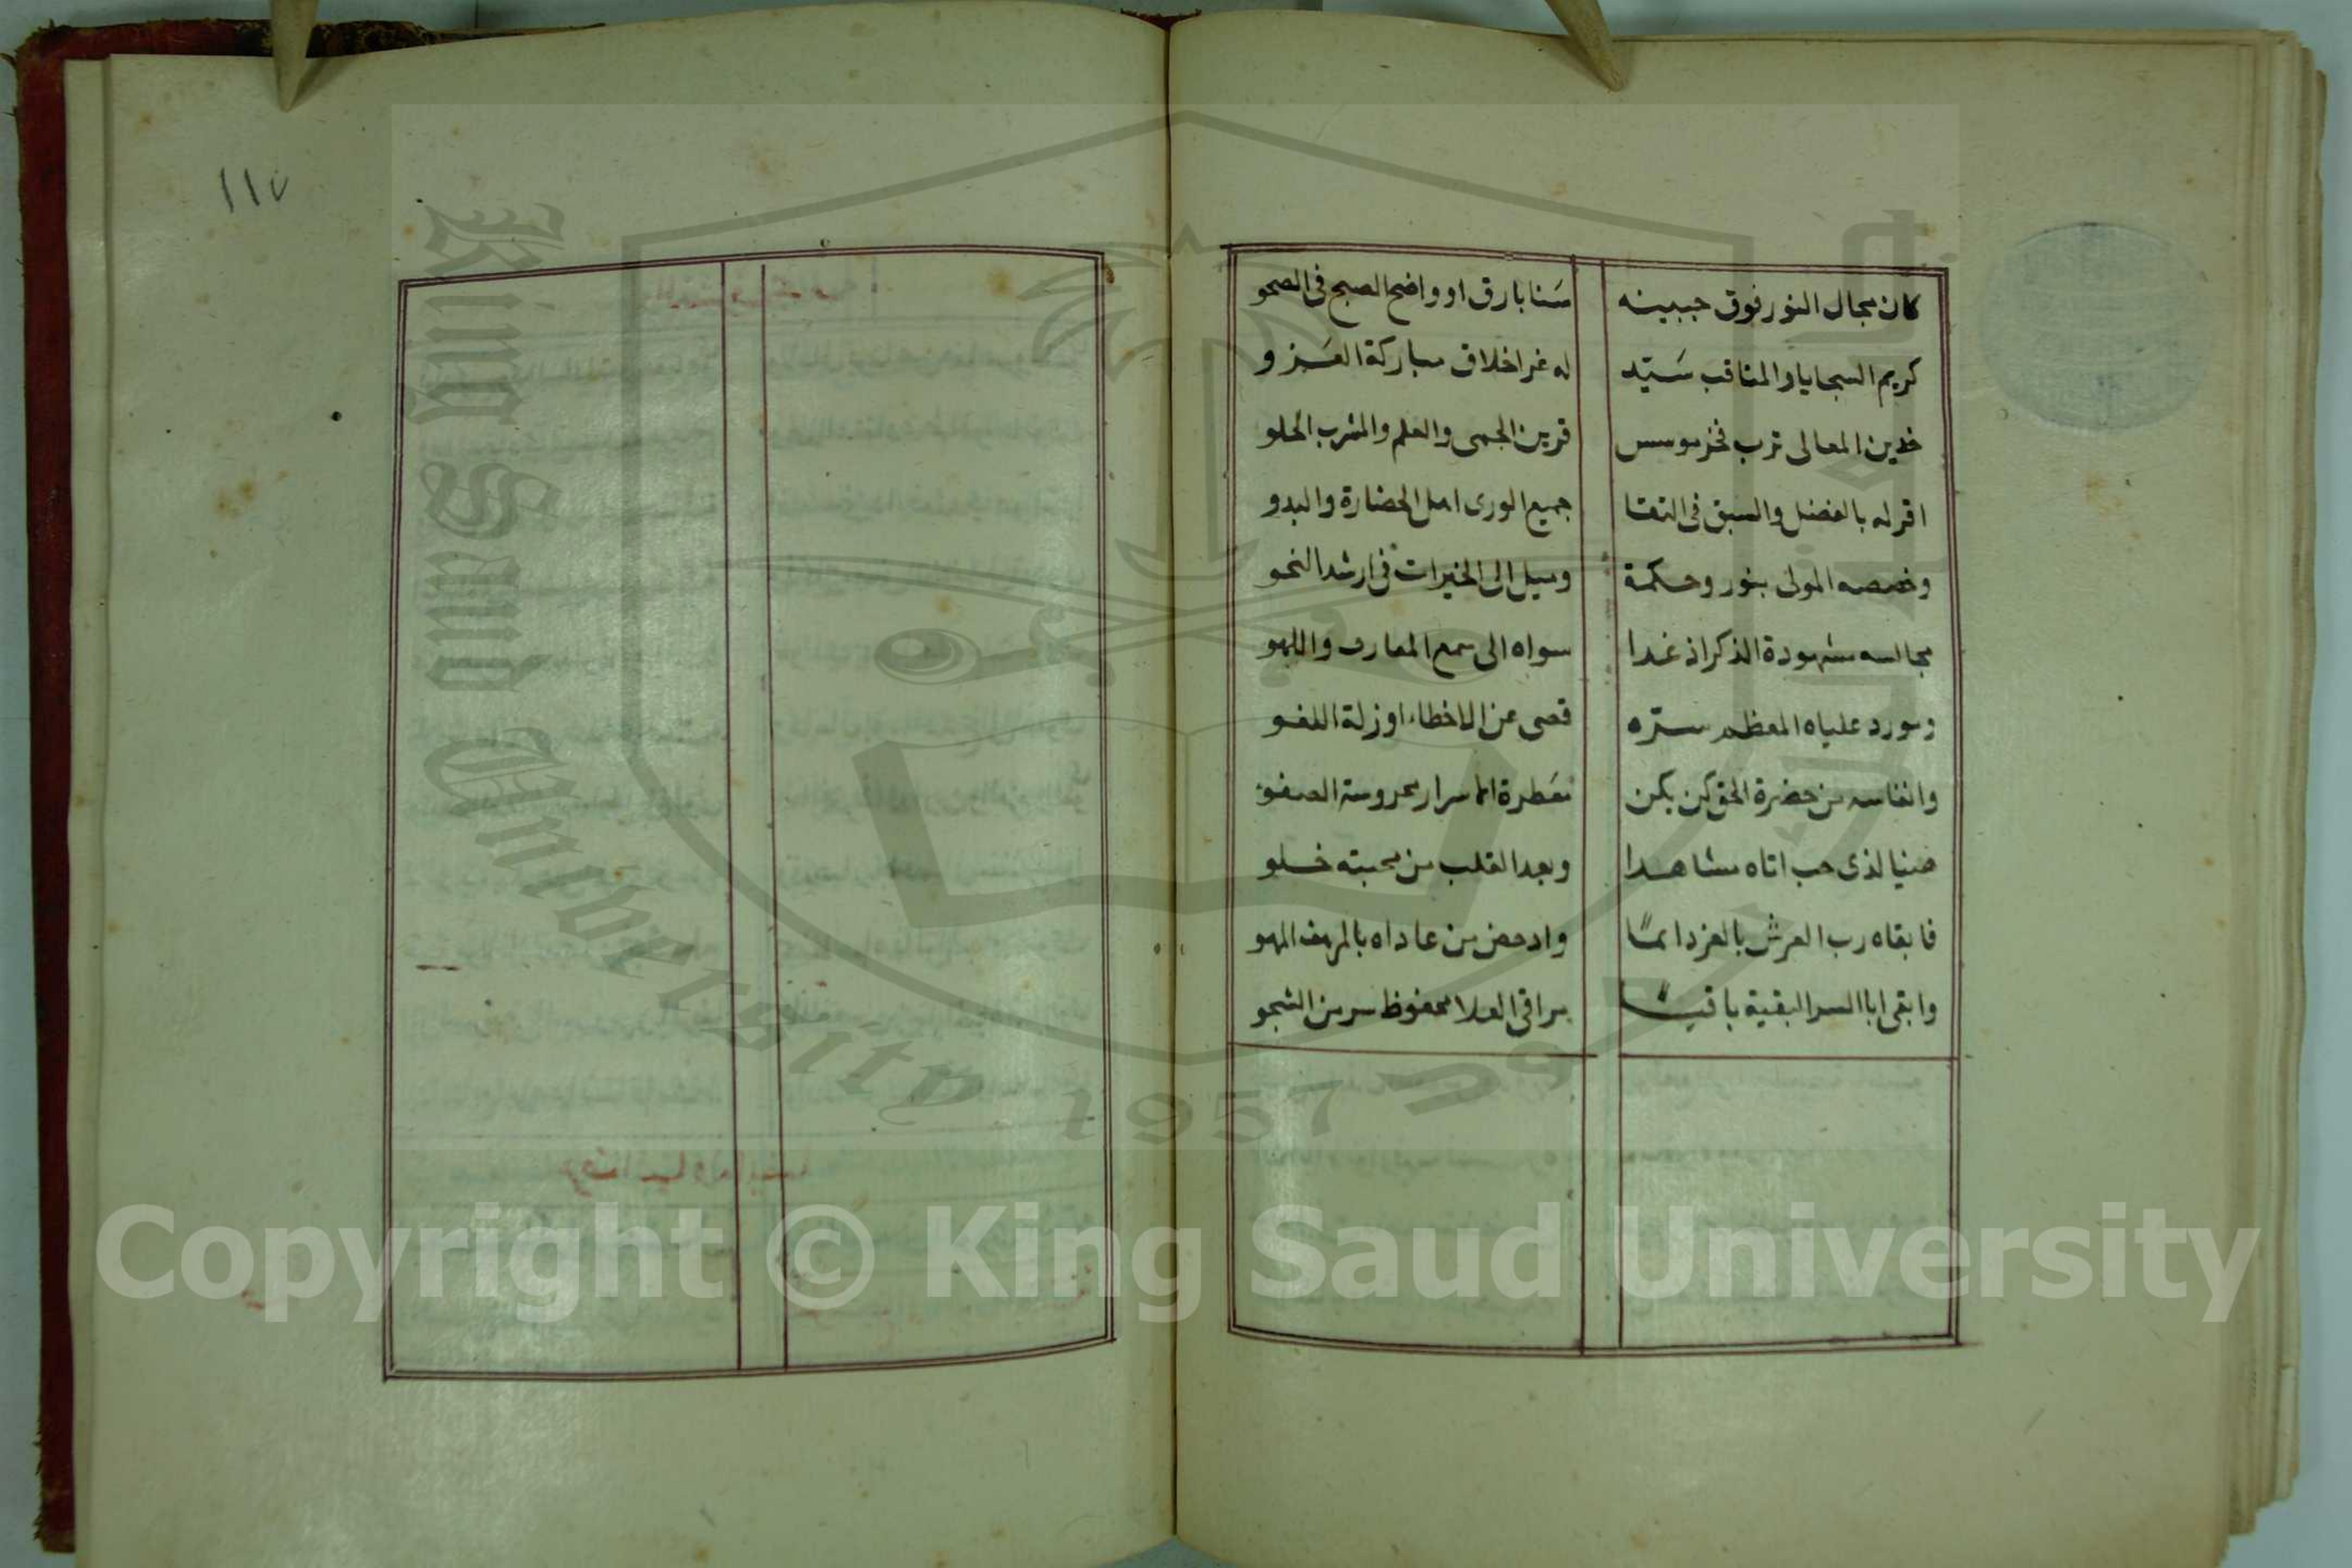 كان مجال النور فوق جبينه سَنا بارق او واضح الصبح فى الصحو
كريم السجايا والمناقب سَيّد له غر اخلاق مباركة العَـزو
خدين المعالى ترب فخر موسس قرين الحجى والعلم والمشرب الحلو
اقر له بالفضل والسبق فى التقا جميع الورى اهل الحضارة والبدو
وخصصه المولى بنور وحكمة وميل الى الخيرات فى ارشد النحو
مجالسه مشهودة الذكر اذ غدا سواه الى سمع المعازف واللهو
ومورد علياه المعظم ستره قصى عن الاخطاء او زلة اللغو
وانفاسه من حضرة الحق كن يكن معَطرة الاسرار محروسة الصفو
هنيا لذى حب اتاه مشاهدا وبعدا لقلب من محبته خلو
فابقاه رب العرش بالعز دائماً وادحض من عاداه بالمرهف المهو
وابقى ابا السر البقية باقياً مراقى العلا محفوظ سر من الشجو
١١٧
King Saud University
1957
Copyright © King Saud University